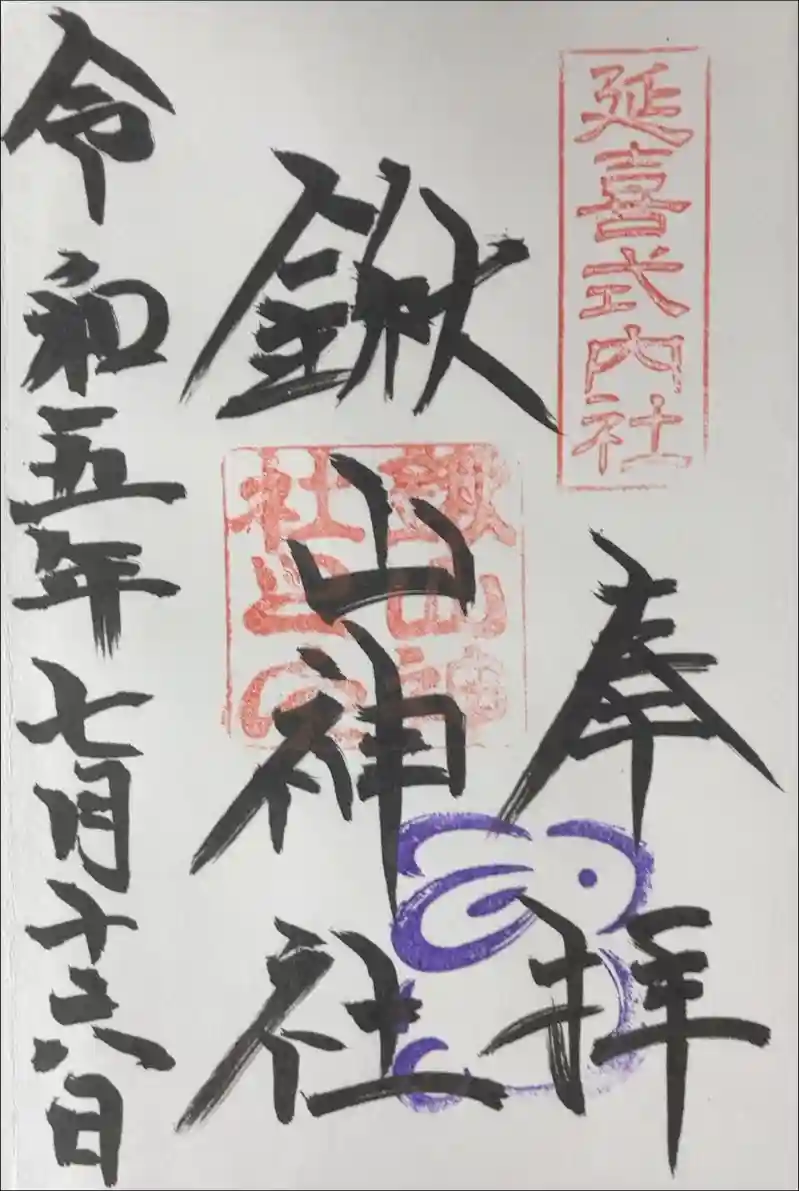 延喜式内社
奉拝
鍬山神社
鍬山神
社之印
令和五年七月十六日